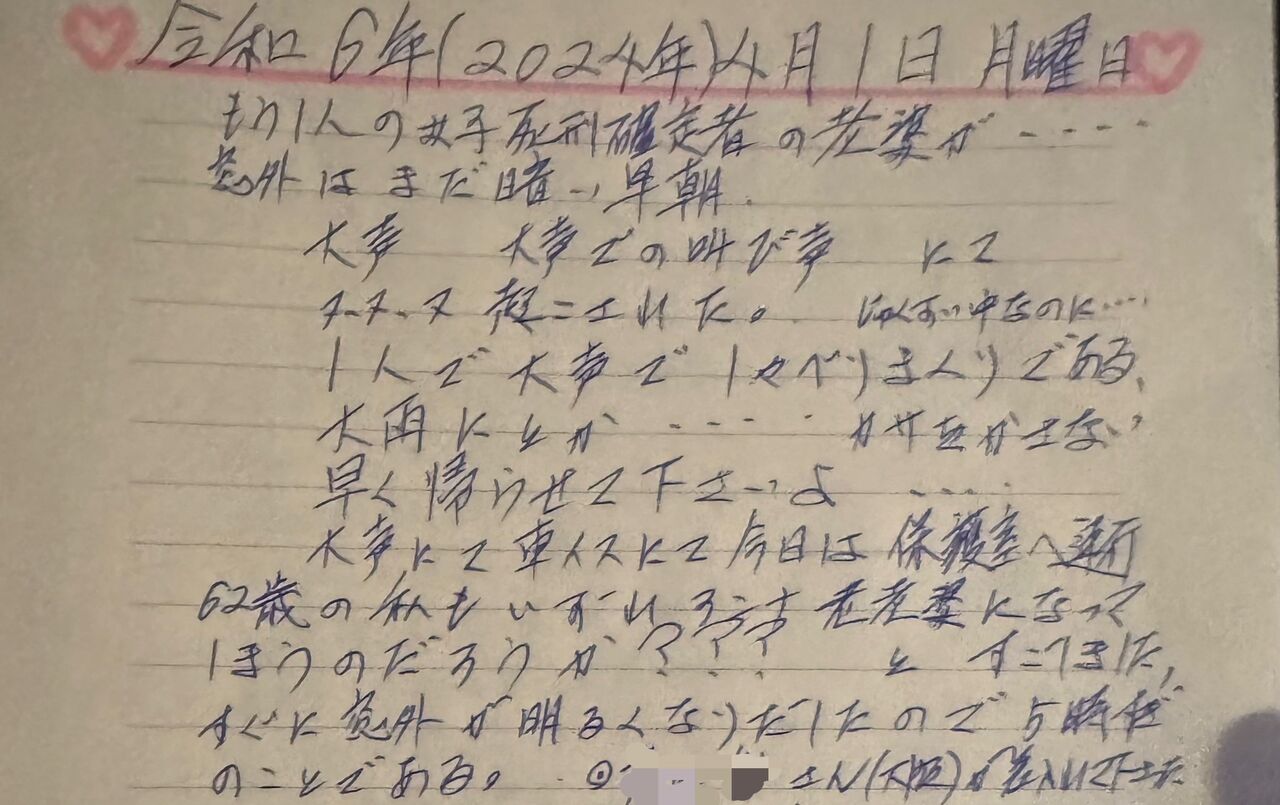 令和6年(2024年)4月1日 月曜日
もう1人の女子死刑確定者の老婆が‥‥
窓外はまだ暗い早朝.
大声 大声での叫び声 にて
ヌ-ヌ-ヌ 起こされた。 じゅくすい中なのに‥‥
1人で大声でしゃべりまくりである、
大雨にとか ‥‥ カサをかさない
早く帰らせて下さいよ ‥‥
大声にて車イスにて今日は保護室へ連行
62歳の私もいずれ 老老婆になって
しまうのだろうか??? と
すぐに窓外が明るくなりだしたので5時せ
のことである。 ◎ さん(大阪)が差入れて下さった